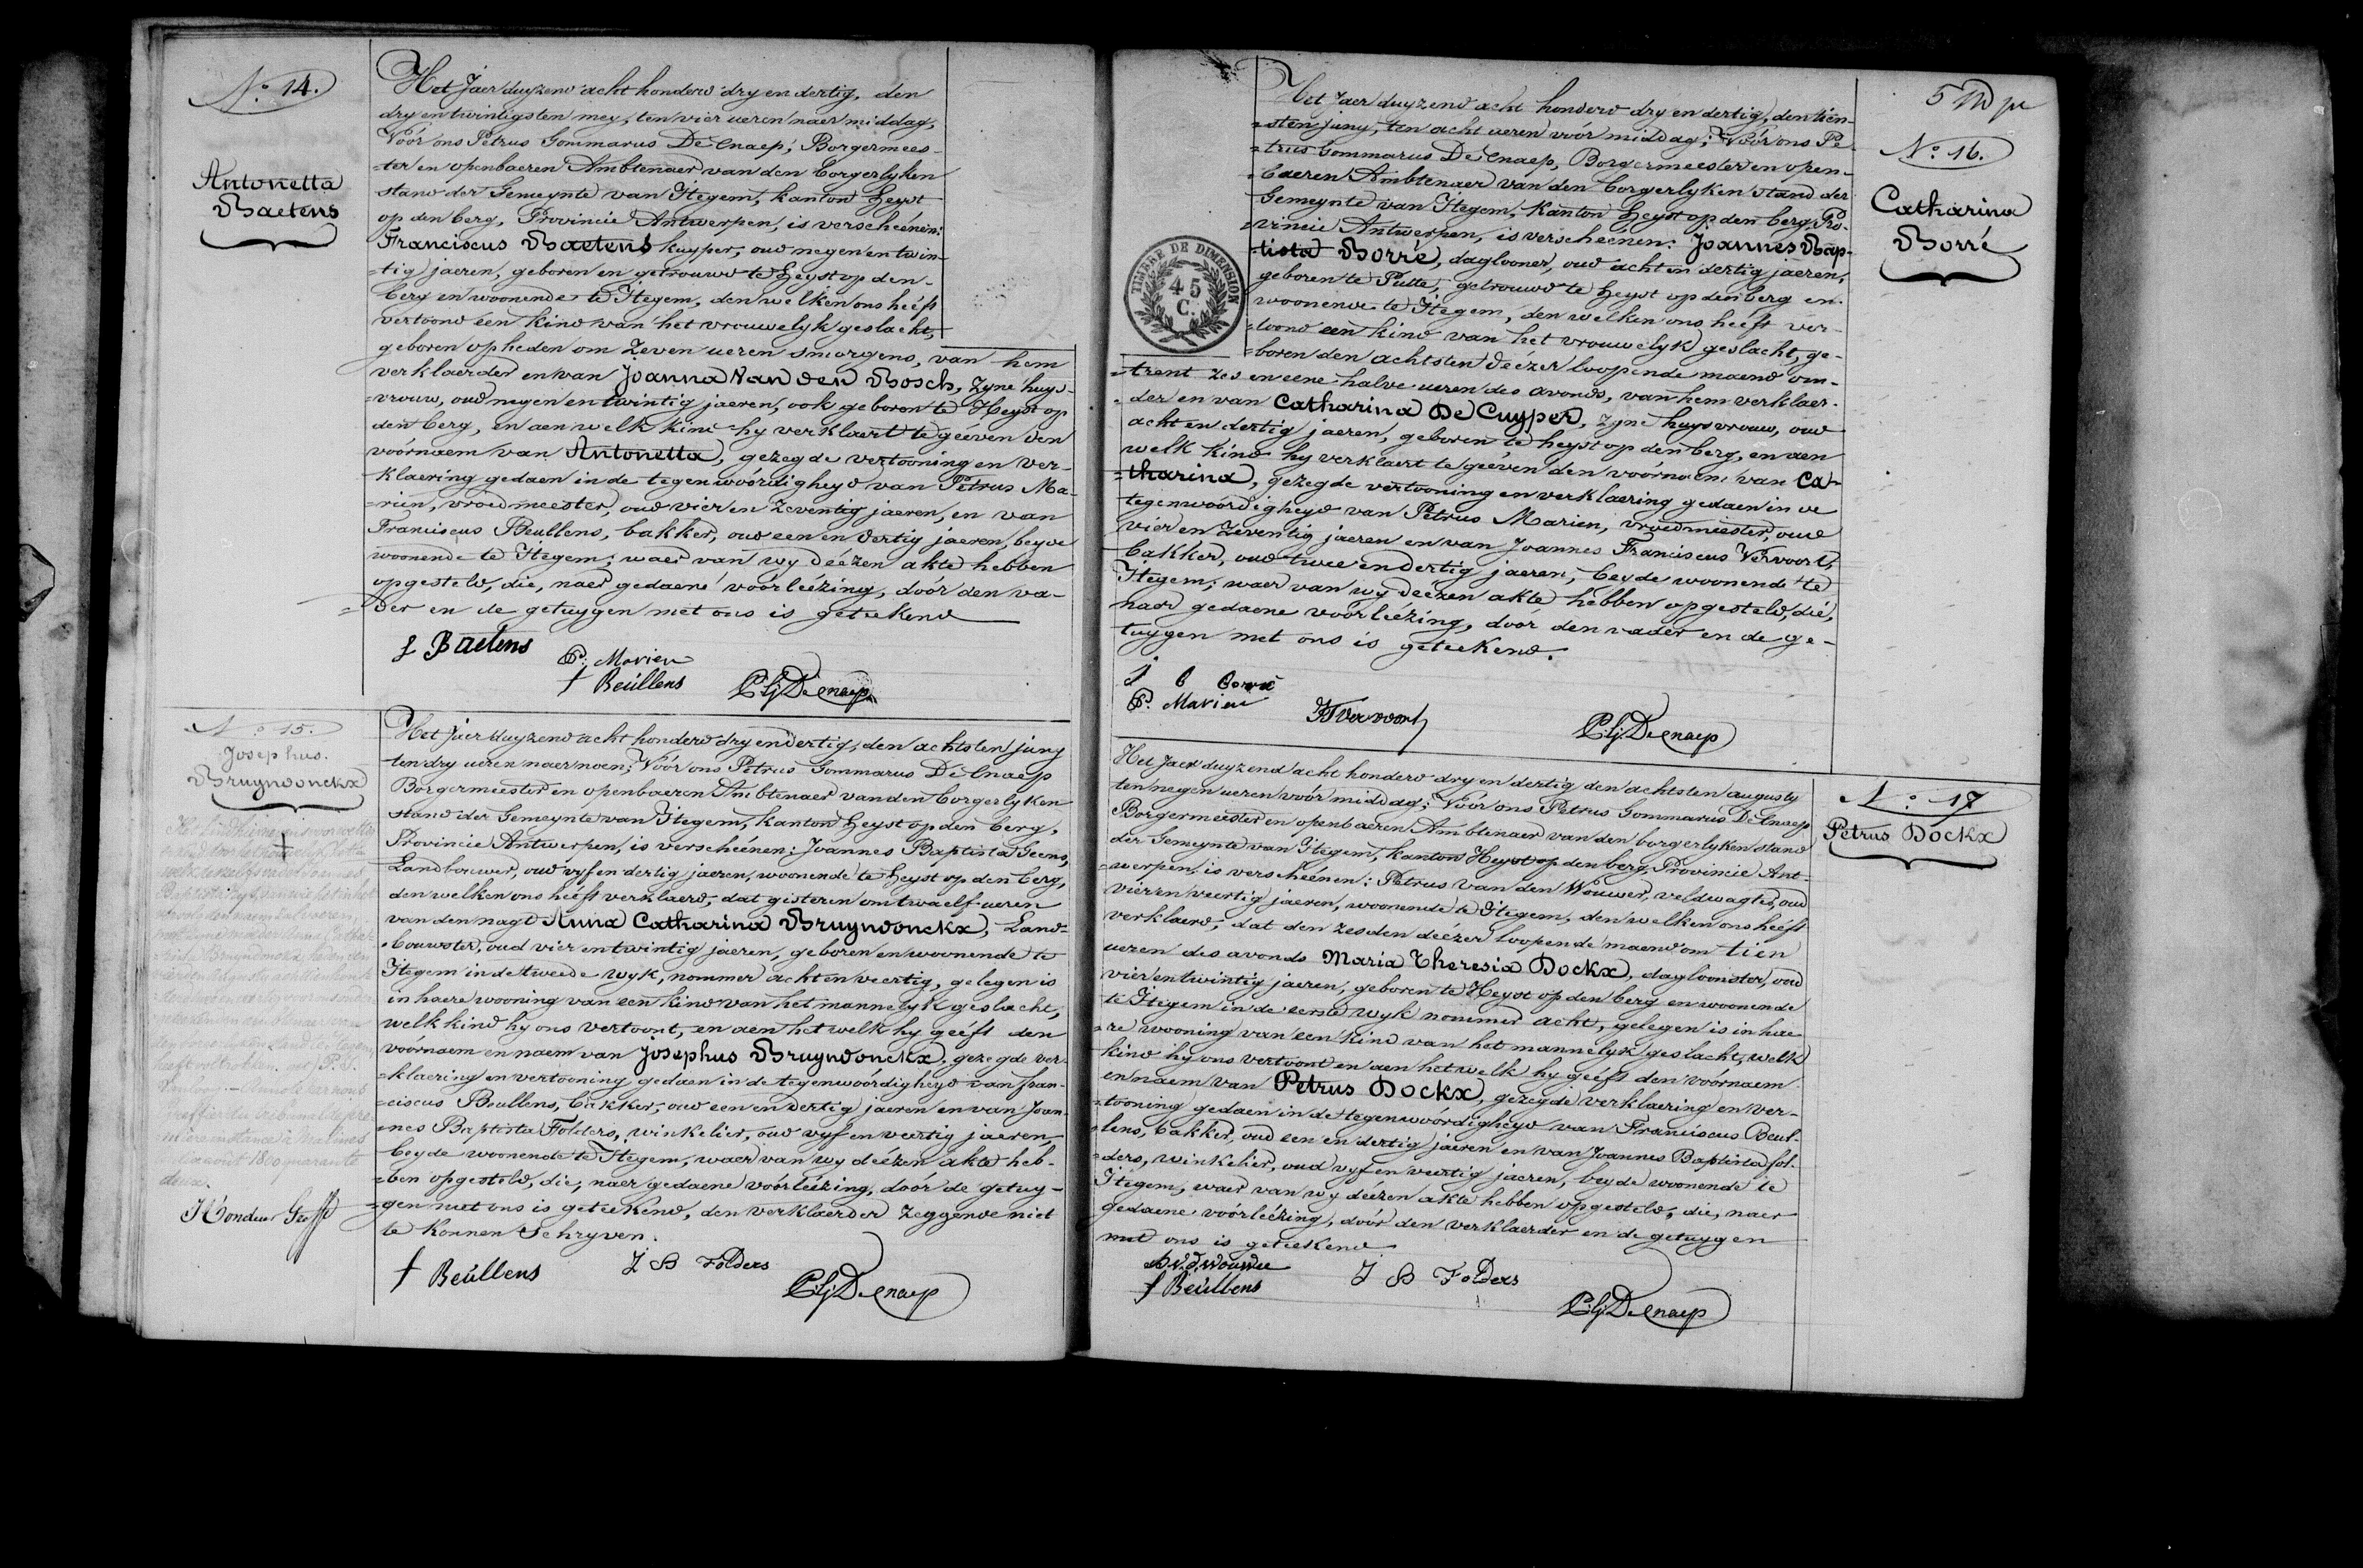 N.º 14.
Antonetta
Baetens
Het Jaer duyzend acht honderd dry en dertig, den
dry en twintigsten mey, ten vier ueren naer middag,
Vóór ons Petrus Gommarus De Cnaep, Borgermees-
-ter en openbaeren Ambtenaer van den borgerlyken
stand der Gemeynte van Itegem, kanton Heyst
op den berg, Provincie Antwerpen, is verscheénen:
Franciscus Baetens kuyper, oud negen en twin-
-tig jaeren, geboren en getrouwd te Heyst op den-
berg en woonende te Itegem, den welken ons heéft
vertoond een kind van het vrouwelyk geslacht,
geboren op heden om zeven ueren smorgens, van hem
verklaerder en van Joanna Van den Bosch, zyne huys-
-vrouw, oud negen en twintig jaeren, ook geboren te Heyst op
den berg, en aen welk kind hy verklaert te geéven den
vóórnaem van Antonetta, gezegde vertooning en ver-
-klaering gedaen in de tegenwóórdigheyd van Petrus Ma-
-rien, vroedmeester, oud vier en zeventig jaeren, en van
Franciscus Beullens, bakker, oud een en dertig jaeren, beyde
woonende te Itegem; waer van wy deézen akte hebben
opgesteld, die, naer gedaene vóórleézing, dóór den va-
-der en de getuygen met ons is geteekend
f Baetens
P. Marien
f Beullens
P:G:DeCnaep
N.º 15.
Josephus
Bruyndonckx
Het Jaer duyzend acht honderd dry en dertig, den achtsten juny
ten dry ueren naer noen; Vóór ons Petrus Gommarus De Cnaep
Borgermeester en openbaeren Ambtenaer van den borgerlyken
stand der Gemeynte van Itegem, kanton Heyst op den berg,
Provincie Antwerpen, is verscheénen: Joannes Baptista Geens,
Landbouwer, oud vyf en dertig jaeren, woonende te Heyst op den berg,
den welken ons heéft verklaerd, dat gisteren om twaelf ueren
van den nagt Anna Catharina Bruyndonckx, Land-
-bouwster, oud vier en twintig jaeren, geboren en woonende te
Itegem in de tweede wyk, nommer acht en veertig, gelegen is
in haere wooning van een kind van het mannelyk geslacht,
welk kind hy ons vertoont, en aen het welk hy geéft den
vóórnaem en naem van Josephus Bruyndonckx, gezegde ver-
-klaering en vertooning gedaen in de tegenwóórdigheyd van fran-
-ciscus Beullens, bakker, oud een en dertig jaeren en van Joan-
-nes Baptista Folders, winkelier, oud vyf en veertig jaeren,
beyde woonende te Itegem, waer van wy deézen akte heb-
-ben opgesteld, die, naer gedaene vóórleézing, dóór de getuy-
-gen met ons is geteekend, den verklaerder zeggende niet
te konnen schryven.
f Beullens
J B Folders
P:G:DeCnaep
TIMBRE DE DIMENSION
45
C.
5
N.º 16.
Catharina
Borré
Het Jaer duyzend acht honderd dry en dertig, den tien-
-sten juny, ten acht ueren vóór middag; Vóór ons Pe-
-trus Gommarus De Cnaep, Borgermeester en open-
-baeren Ambtenaer van den borgerlyken stand der
Gemeynte van Itegem, Kanton Heyst op den berg, Pro-
-vincie Antwerpen, is verscheénen: Joannes Bap-
-tista Borré, daglooner, oud acht en dertig jaeren,
geboren te Putte, getrouwd te Heyst op den berg en
woonende te Itegem, den welken ons heéft ver-
-toond een kind van het vrouwelyk geslacht, ge-
-boren den achtsten deézer loopende maend om-
-trent zes en eene halve ueren des avonds, van hem verklaer-
-der en van Catharina De Cuyper, zyne huysvrouw, oud
acht en dertig jaeren, geboren te heyst op den berg, en aen
welk kind hy verklaert te geéven den vóórnaem van Ca-
-tharina, gezegde vertooning en verklaering gedaen in de
tegenwóórdigheyd van Petrus Marien, vroedmeester, oud
vier en zeventig jaeren en van Joannes Franciscus Vervoort,
bakker, oud twee en dertig jaeren, beyde woonende te
Itegem; waer van wy deézen akte hebben opgesteld, die,
naer gedaene vóórleézing, dóór den vader en de ge-
tuygen met ons is geteekend.
J B Borré
P. Marien
JF Vervoort
P:G:DeCnaep
N.º 17
Petrus Dockx
Het Jaer duyzend acht honderd dry en dertig den achtsten augusty
ten negen ueren vóór middag; Vóór ons Petrus Gommarus De Cnaep
Borgermeester en openbaeren Ambtenaer van den borgerlyken stand
der Gemeynte van Itegem, kanton Heyst op den berg, Provincie Ant-
-werpen, is verscheénen: Petrus van den Wouwer, veldwagter, oud
vier en veertig jaeren, woonende te Itegem, den welken ons heéft
verklaerd, dat den zesden deézer loopende maend om tien
ueren des avonds Maria Theresia Dockx, dagloonster, oud
vier en twintig jaeren, geboren te Heyst op den berg en woonende
te Itegem in de eerste wyk nommer acht, gelegen is in hae-
-re wooning van een kind van het mannelyk geslacht, welk
kind hy ons vertoont en aen het welk hy geéft den vóórnaem
en naem van Petrus Dockx, gezegde verklaering en ver-
-tooning gedaen in de tegenwóórdigheyd van Franciscus Beul-
-lens, bakker, oud een en dertig jaeren en van Joannes Baptista fol-
-ders, winkelier, oud vyf en veertig jaeren, beyde woonende te
Itegem, waer van wy deézen akte hebben opgesteld, die, naer
gedaene vóórleézing, dóór den verklaerder en de getuygen
met ons is geteekend
P.V.D.Wouwer
f Beullens
J B Folders
P:G:DeCnaep